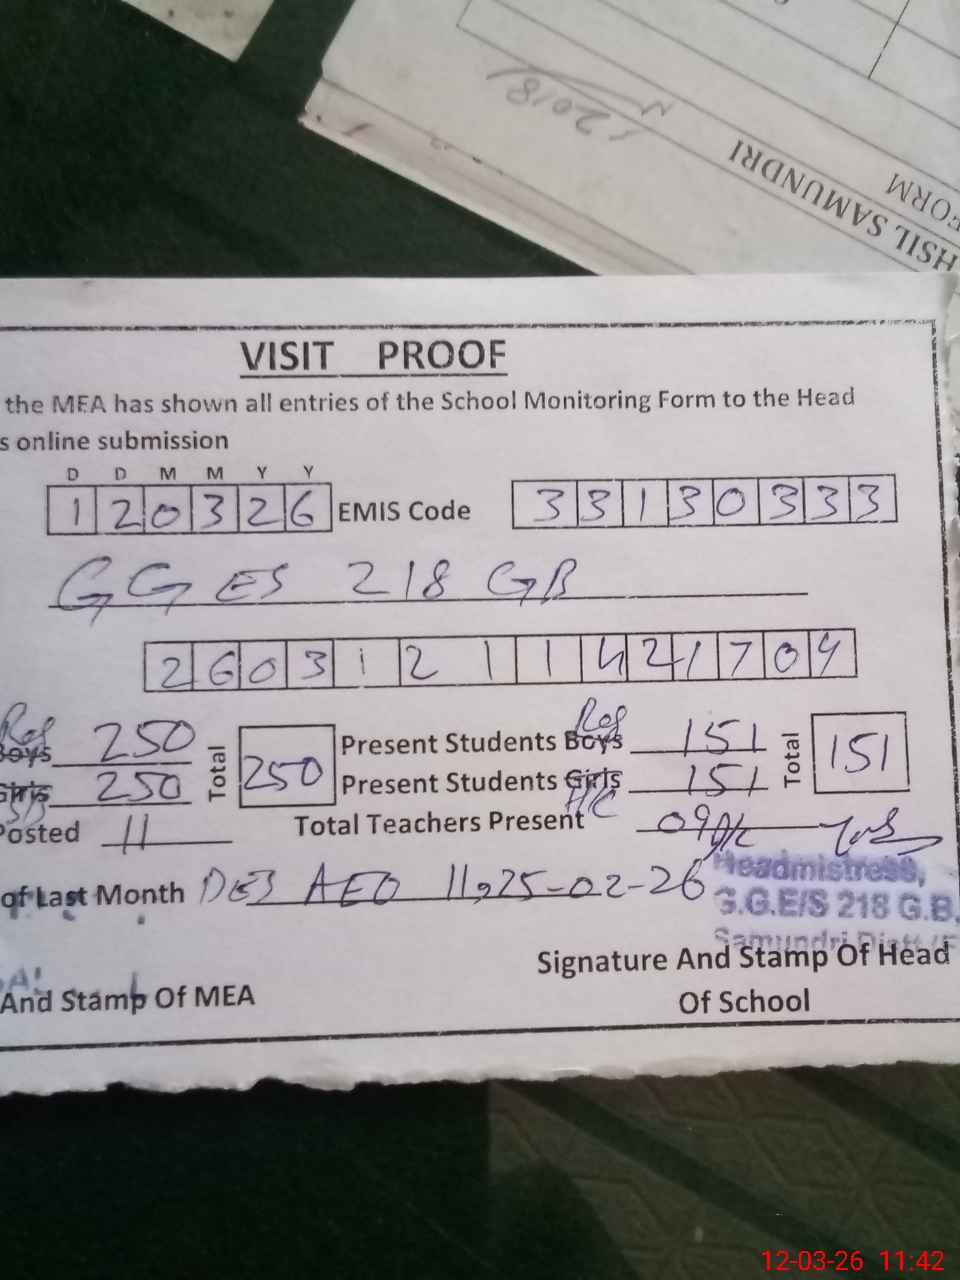 2018
HSIL SAMUNDRI
FORM
VISIT PROOF
the MEA has shown all entries of the School Monitoring Form to the Head
s online submission
D D M M Y Y
120326 EMIS Code 33130333
GGES 218 GB
Reg Reg
Boys 250 Total 250 Present Students Boys 151 Total 151
Girls 250 Present Students Girls 151
H/C
Posted 11 Total Teachers Present 09
of Last Month AEO 11,25-02-26
Headmistress,
G.G.E/S 218 G.B.
Samundri Distt
Signature And Stamp Of Head
Of School
And Stamp Of MEA
12-03-26 11:42